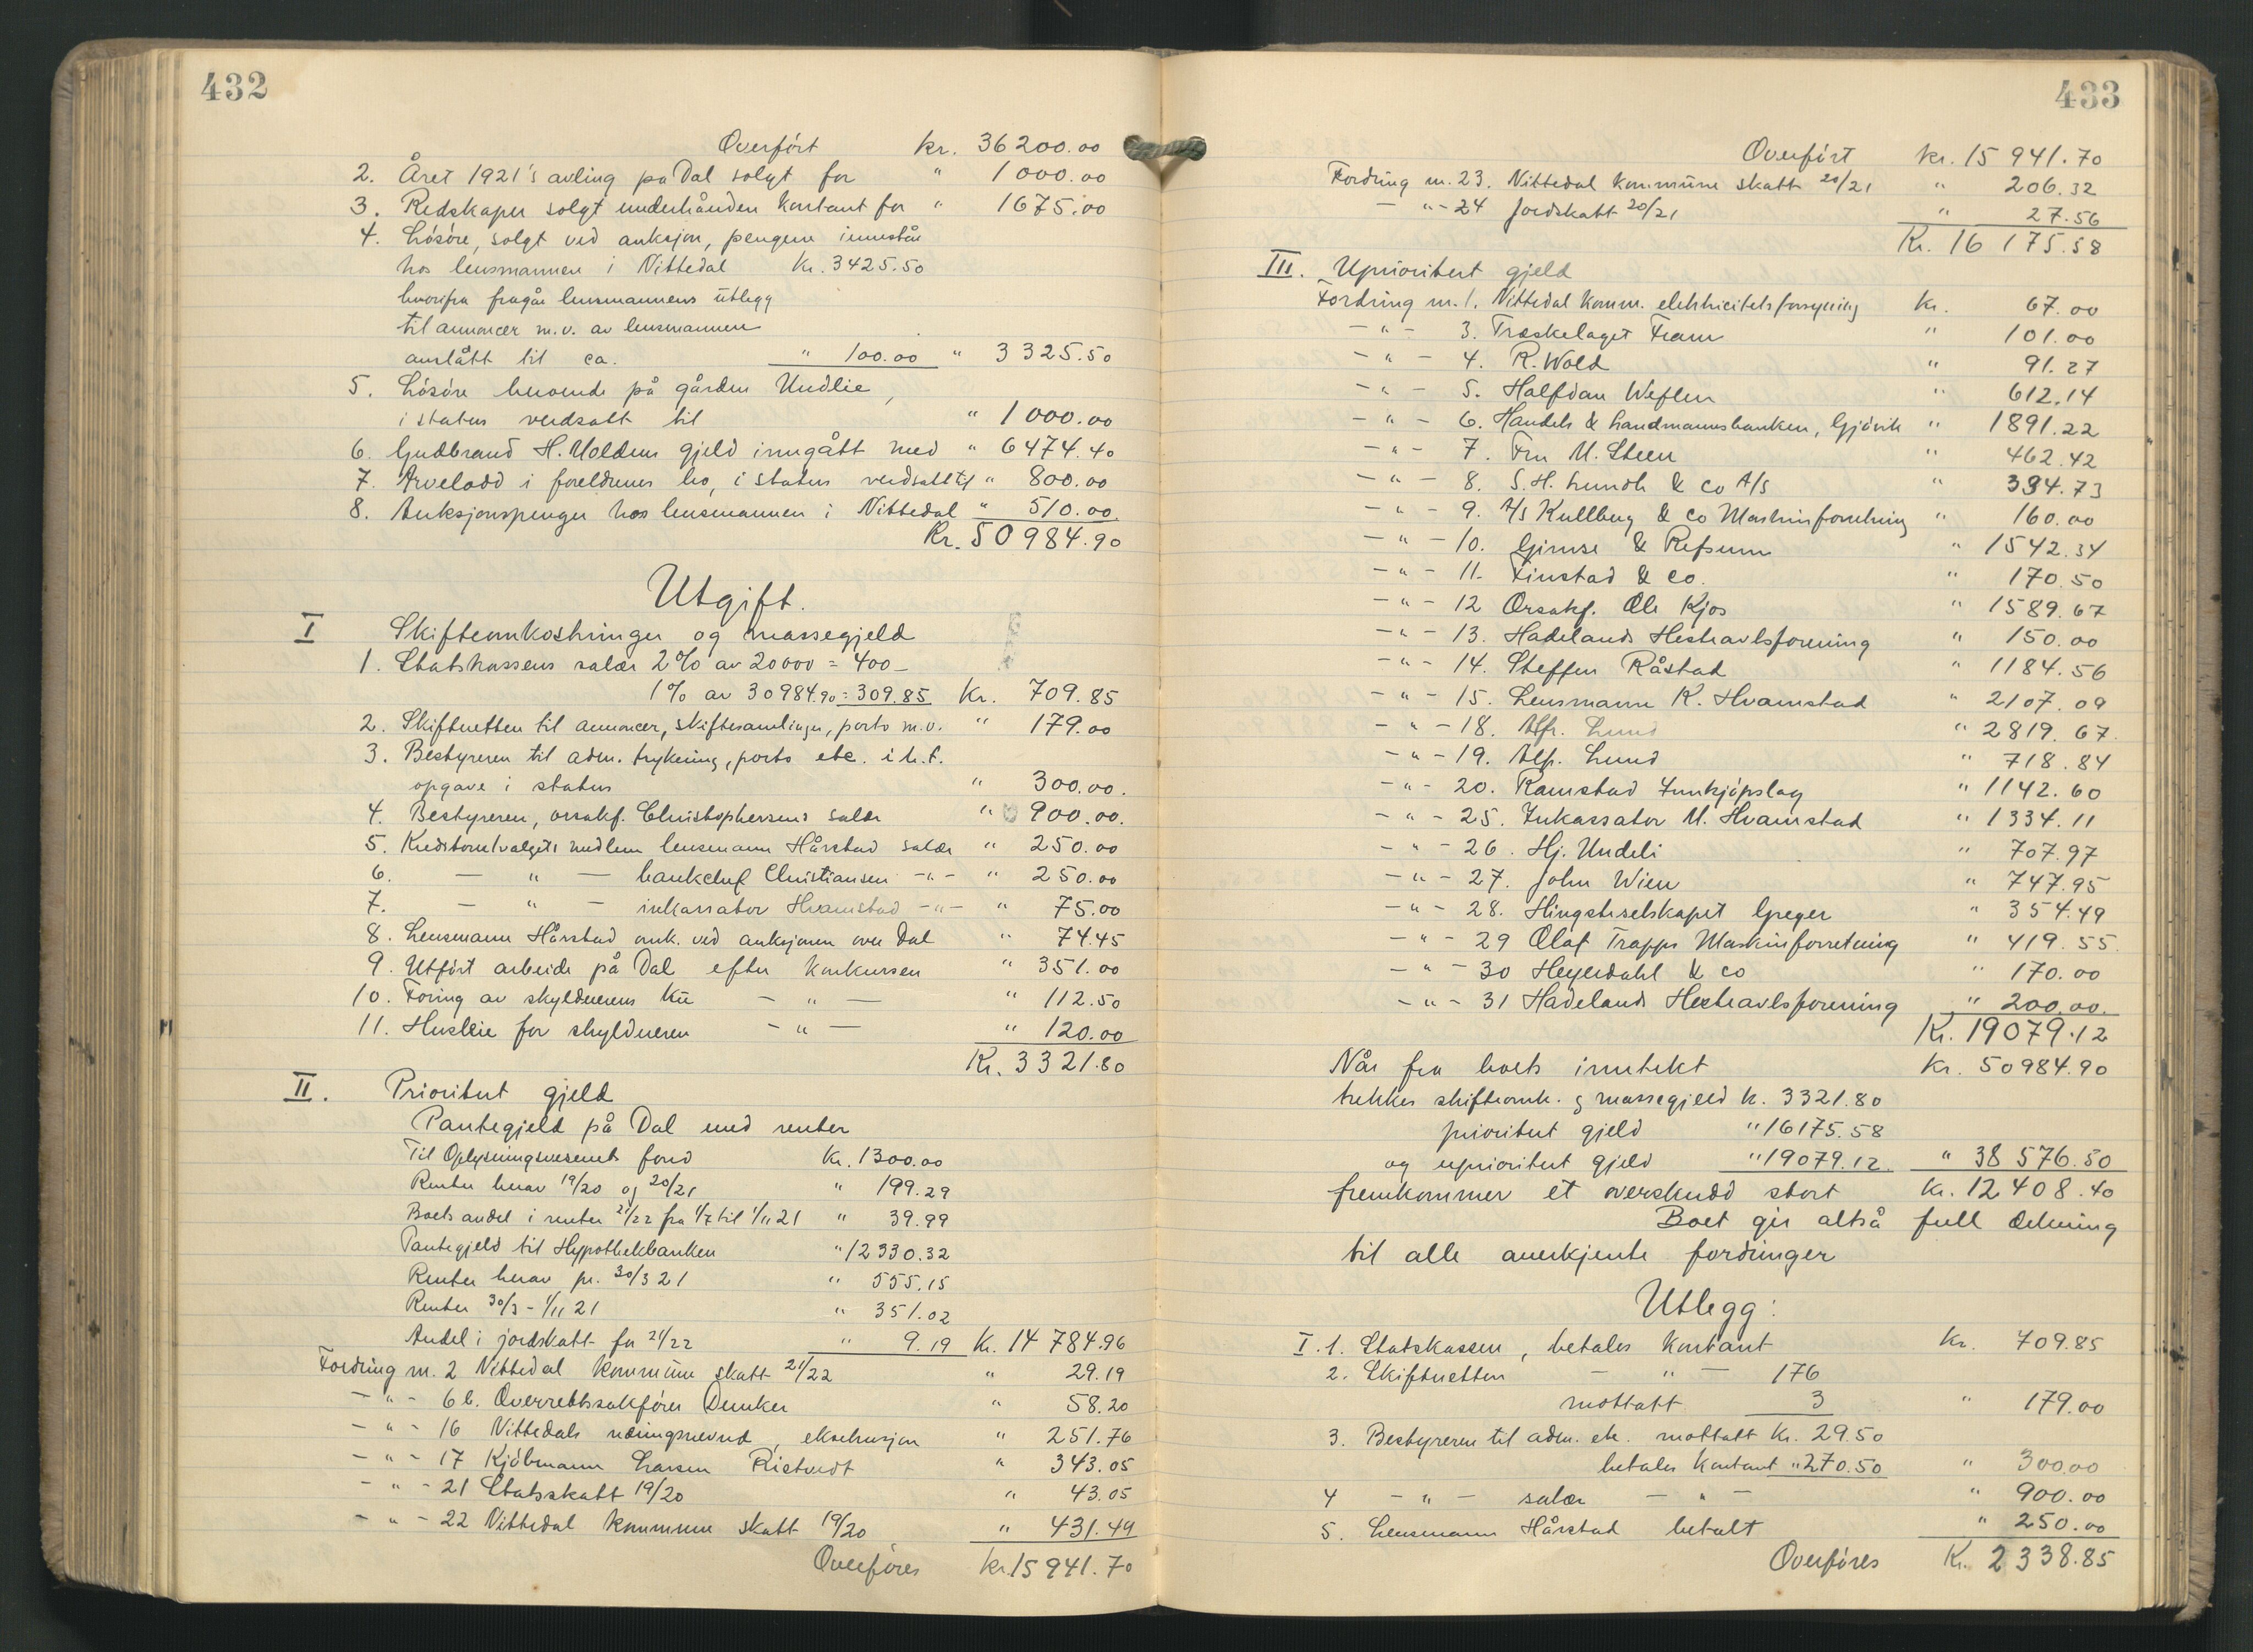 432
Overført kr. 36200.00
2. Året 1921's avling på Dal solgt for " 1000.00
3. Redskaper solgt underhånden kontant for " 1675.00
4. Løsøre, solgt ved auksjon, pengene innestår
hos lensmannen i Nittedal kr. 3425.50
hvorifra fragår lensmannens utlegg
til annoncer m.v. av lensmannen
anslått til ca. " 100.00 " 3325.50
5. Løsøre beroende på gården Undlie,
i status verdsatt til " 1000.00
6. Gudbrand H. Moldens gjeld inngått med " 6474.40
7. Arvelodd i foreldrenes bo, i status verdsatt til " 800.00
8. Auksjonspenger hos lensmannen i Nittedal " 510.00
Kr. 50984.90
Utgift.
I Skifteomkostninger og massegjeld
1. Statskassens salær 2% av 20000 = 400 -
1% av 30984.90 = 309.85 Kr. 709.85
2. Skifteretten til annoncer, skiftesamlinger, porto m.v. " 179.00
3. Bestyreren til adm. trykning, porto etc. i h.t.
opgave i status " 300.00.
4. Bestyreren, orsakf. Christophersens salær " 900.00.
5. Kreditorutvalgets medlem lensmann Hårstad salær " 250.00
6. — " — bankchef Christiansen -"- " 250.00
7. — " — inkassator Hvamstad -"- " 75.00
8. Lensmann Hårstad omk. ved auksjonen over Dal " 74.45
9. Utført arbeide på Dal efter konkursen " 351.00
10. Foring av skyldnerens ku - " — " 112.50
11. Husleie for skyldneren - " — " 120.00
Kr. 3321.80
II. Prioritert gjeld
Pantegjeld på Dal med renter
Til Oplysningsvesenets fond Kr. 1300.00
Renter herav 19/20 og 20/21 " 199.29
Boets andel i renter 21/22 fra 1/7 til 1/11 21 " 39.99
Pantegjeld til Hypothekbanken " 12330.32
Renter herav pr. 30/3 21 " 555.15
Renter 30/3 - 1/11 21 " 351.02
Andel i jordskatt for 21/22 " 9.19 Kr. 14784.96
Fordring nr. 2 Nittedal kommune skatt 21/22 " 29.19
- " - 6b. Overrettssakfører Dunker " 58.20
- " - 16 Nittedals næringsnevnd, eksekusjon " 251.76
- " - 17 Kjøbmann Larsen Ristvedt " 343.05
- " - 21 Statsskatt 19/20 " 43.05
- " - 22 Nittedal kommune skatt 19/20 " 431.49
Overføres kr. 15941.70
433
Overført kr. 15941.70
Fordring nr. 23. Nittedal kommune skatt 20/21 " 206.32
- " - 24 Jordskatt 20/21 " 27.56
Kr. 16175.58
III. Uprioritert gjeld
Fordring nr. 1. Nittedal komm. elektricitetsforsyning Kr. 67.00
- " - 3. Treskelaget Fram " 101.00
- " - 4. R. Wold " 91.27
- " - 5. Halfdan Weflen " 612.14
- " - 6. Handels & Landmannsbanken, Gjøvik " 1891.22
- " - 7. Fru M. Steen " 462.42
- " - 8. S.H. Lundh & Co A/S " 334.73
- " - 9. A/S Kullberg & Co Maskinforretning " 160.00
- " - 10. Gimse & Refsum " 1542.34
- " - 11. Finstad & Co. " 170.50
- " - 12 Orsakf. Ole Kjos " 1589.67
- " - 13. Hadelands Hesteavlsforening " 150.00
- " - 14. Steffen Råstad " 1184.56
- " - 15. Lensmann K. Hvamstad " 2107.09
- " - 18. Alfr. Lund " 2819.67.
- " - 19. Alfr. Lund " 718.84
- " - 20. Ramstad Innkjøpslag " 1142.60
- " - 25. Inkassator M. Hvamstad " 1334.11
- " - 26. Hj. Undeli " 707.97
- " - 27. John Wien " 747.95
- " - 28. Hingsteselskapet Greger " 354.49
- " - 29 Olaf Trapps Maskinforretning " 419.55.
- " - 30 Heyerdahl & Co " 170.00
- " - 31 Hadelands Hesteavlsforening " 200.00.
Kr. 19079.12
Når fra boets inntekt Kr. 50984.90
trekkes skifteomk. og massegjeld kr. 3321.80
prioritert gjeld " 16175.58
og uprioritert gjeld " 19079.12 " 38576.50
fremkommer et overskudd stort Kr. 12408.40
Boet gir altså full dekning
til alle anerkjente fordringer
Utlegg:
I. 1. Statskassen, betales kontant Kr. 709.85
2. Skifteretten — " — 176
mottatt 3 " 179.00
3. Bestyreren til adm. etc. mottatt Kr. 29.50
betales kontant " 270.50 " 300.00
4 - " - salær - " - " 900.00
5. Lensmann Hårstad betalt " 250.00
Overføres Kr. 2338.85